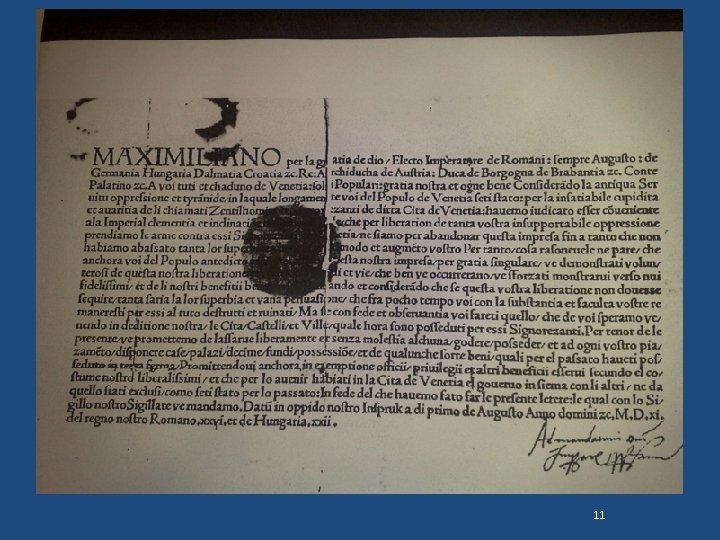 MAXIMILIANO per la gratia de dio / Electo Imperatore de Romani : sempre Augusto : de
Germania Hungaria Dalmatia Croatia zc. Re: Archiducha de Austria : Duca de Borgogna de Brabantia zc. Conte
Palatino zc. A voi tuti et chaduno de Venetia: Populari: gratia nostra et ogne bene Considerãdo la antiqua Ser
uitu oppressione et tyrãnide / in la quale longamente voi del Populo de Venetia seti stato: per la insatiabile cupidita
et auaritia de li chiamati Zentilhomini de dicta Cita de Venetia: hauemo iudicato esser cõueniente
ala Imperial clementia et che per liberation de tanta vostra insupportabile oppressione
prendiamo le arme contra essi ne siamo per abandonar questa impresa fin a tanto che non
habiamo abassato tanta lor modo et augmẽto vostro Per tanto / cola rasoneuele ne pare / che
anchora voi del Populo antedicto nostra impresa / per gratia singulare / ve demonstrati volun/
terosi de questa nostra liberatione et vie / che ben ve occurerano / ve sforzati monstrarui verso nui
fidelissimi / et de li nostri benefitii ando et considerãdo che se questa vostra liberatione non douesse
sequire / tanta saria la lor superbia et vana persuasione / che fra pocho tempo voi con la substantia et faculta vostre re
maneresti per essi al tuto destructi et ruinati / Ma se con fede et obseruantia voi fareti quello / che de voi speramo ve/
nendo in deditione nostra / le Cita / Castelli / et Ville / quale hora sono posseduti per essi Signorezanti. Per tenor de le
presente / ve promettemo de lassarue liberamente et senza molestia alchuna / godere / posseder / et ad ogni vostro pia/
zamẽto / disponere case / palazi / decime / fundi / possessiõe / et de qualunche sorte beni / quali per el passato haueti pos/
seduto in tota forma / Promittendoui anchora, in exemptione officii / priuilegii et altri beneficii esserui secundo el co/
stume nostro liberalissimi / et che per lo auenir habiati in la Cita de Venetia el gouerno insiema con li altri / ne da
quello siati exclusi / como seti stato per lo passato: In fede del che hauemo fato far le presente letere: le qual con lo Si/
gillo nostro Sigillate ve mandamo. Datũ in oppido nostro Inspruk a di primo de Augusto Anno domini zc. M.D.xi.
del regno nostro Romano .xxvi. et de Hungaria .xxii.
11